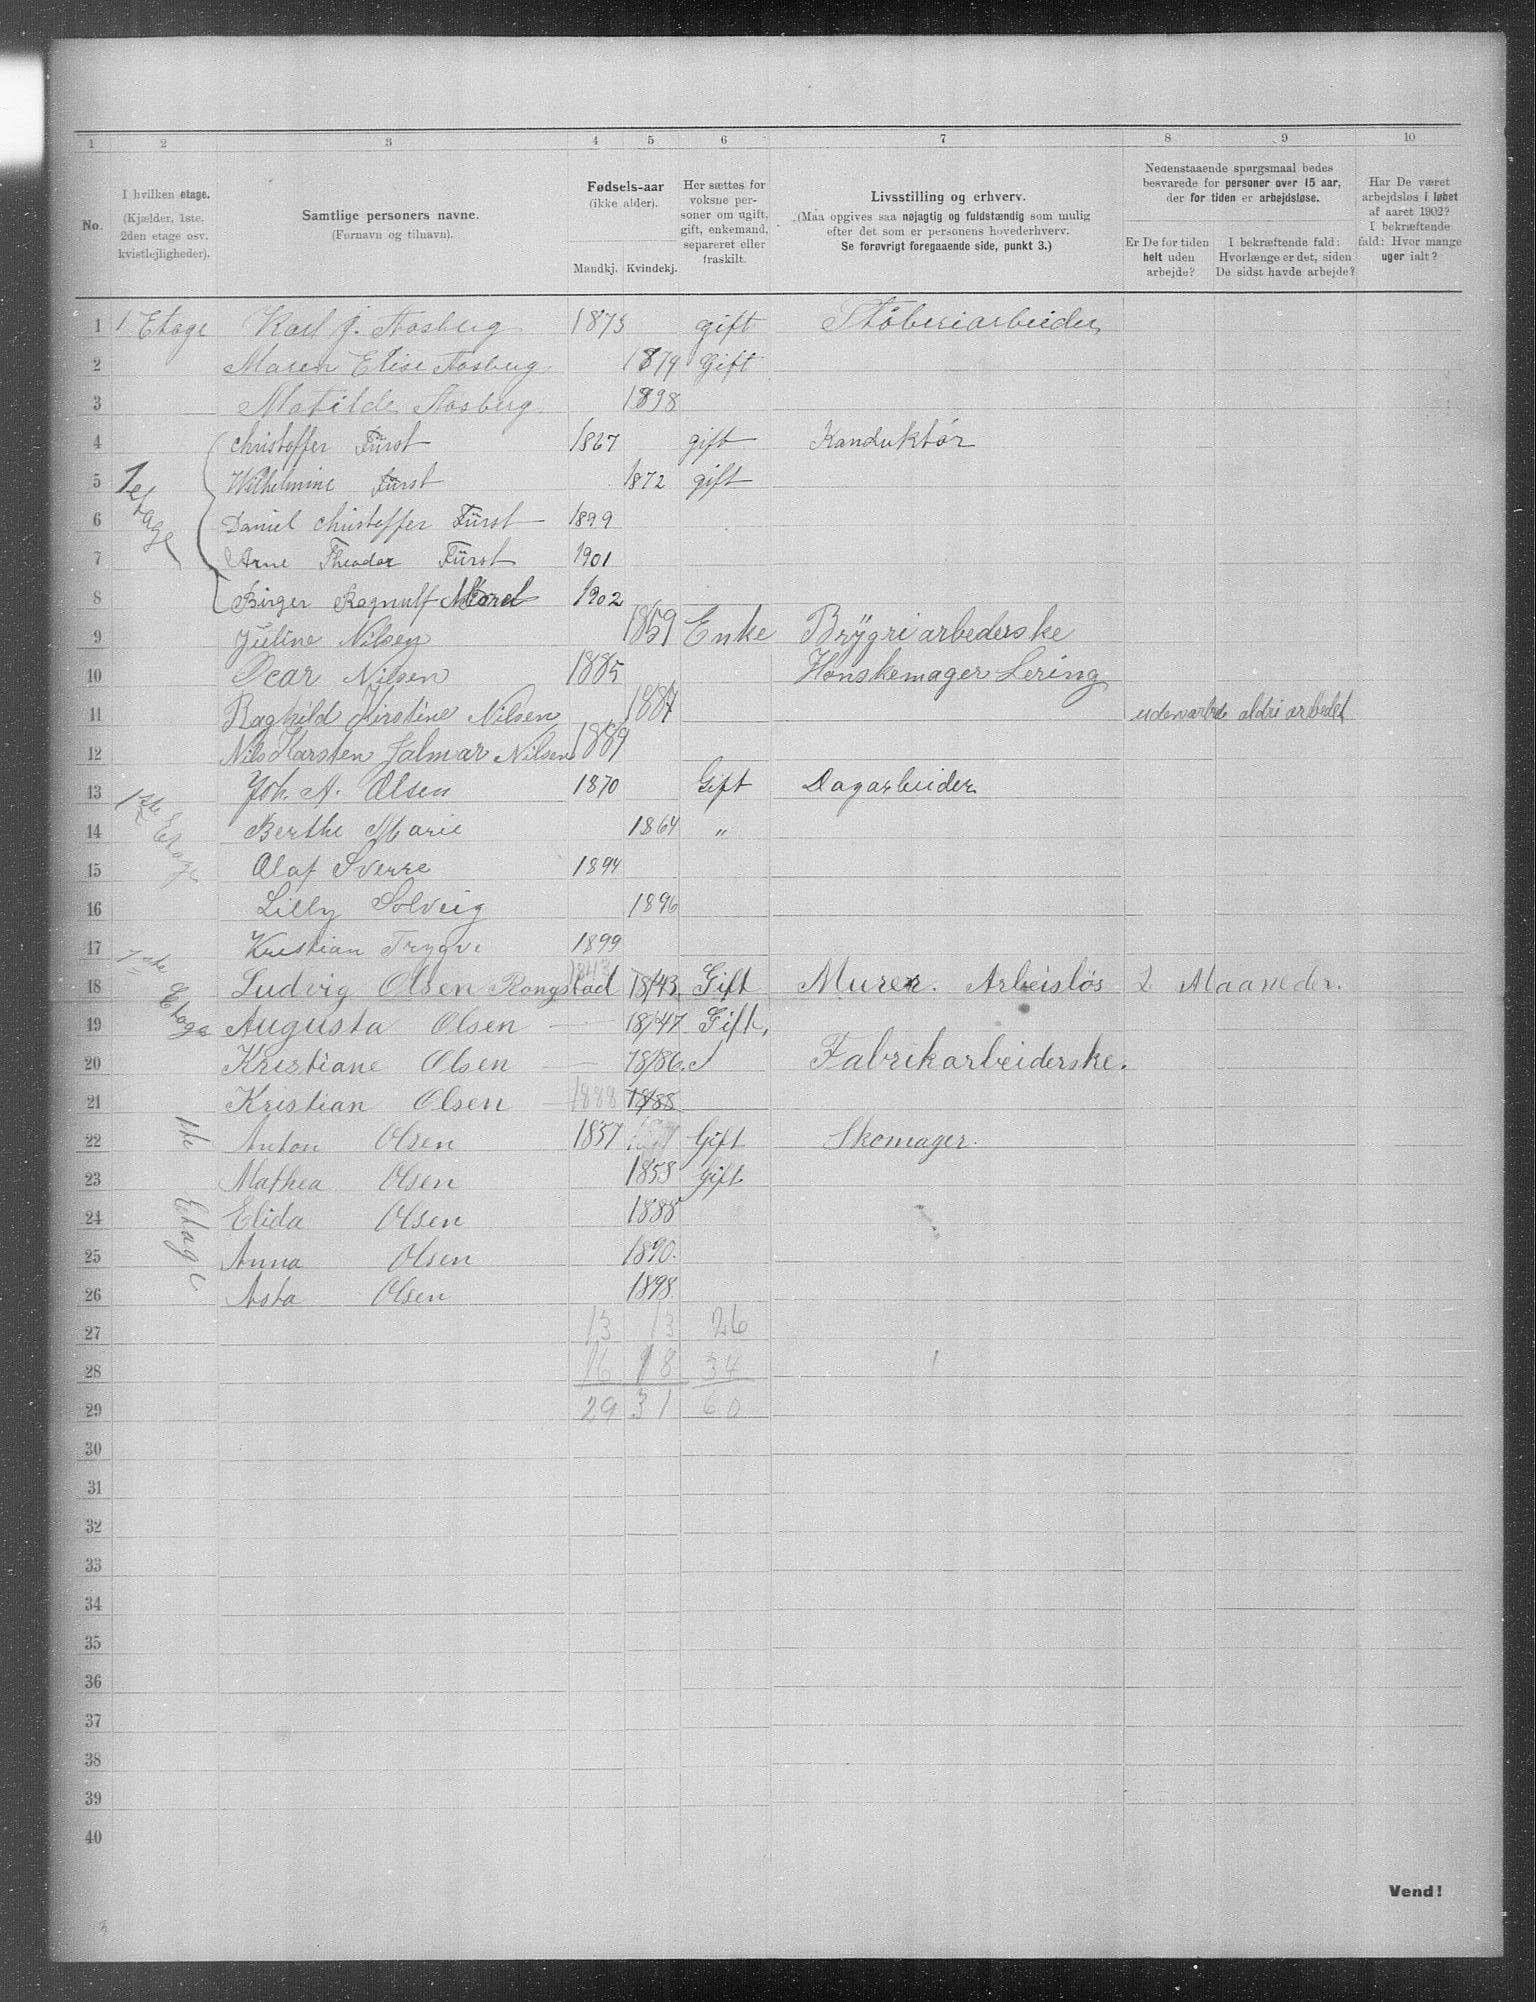 1 2 3 4 5 6 7 8 9 10
No.
I hvilken etage.
(Kjælder, 1ste, 2den etage osv. kvistlejligheder).
Samtlige personers navne.
(Fornavn og tilnavn).
Fødsels-aar
(ikke alder).
Mandkj. Kvindekj.
Her sættes for voksne personer om ugift, gift, enkemand, separeret eller fraskilt.
Livsstilling og erhverv.
(Maa opgives saa nøjagtig og fuldstændig som mulig
efter det som er personens hovederhverv.
Se forøvrigt foregaaende side, punkt 3.)
Nedenstaaende spørgsmaal bedes
besvarede for personer over 15 aar,
der for tiden er arbejdsløse.
Er De for tiden helt uden arbejde?
I bekræftende fald: Hvorlænge er det, siden De sidst havde arbejde?
Har De været arbejdsløs i løbet af aaret 1902? I bekræftende fald: Hvor mange uger ialt?
1 1 Etage Karl J. Aasberg 1873 gift Støberiarbeider
2 Maren Elise Aasberg 1879 Gift
3 Matilde Aasberg 1898
4 Christoffer Fürst 1867 gift Konduktør
5 1 etage Wilhelmine Fürst 1872 gift
6 Daniel Christoffer Fürst 1899
7 Arne Theodor Fürst 1901
8 Birger Ragnulf 1902
9 Juline Nilsen 1859 Enke Brygriarbederske
10 Ocar Nilsen 1885 Hanskemager Lering
11 Raghild Kirstine Nilsen 1887 uden arbede aldri arbedet
12 Nils Karsten Jalmar Nilsen 1889
13 1ste Etage Joh. A. Olsen 1870 Gift Dagarbeider
14 Berthe Marie 1864 "
15 Olaf Sverre 1894
16 Lilly Solveig 1896
17 Kristian Trygve 1899
18 1ste Etage Ludvig Olsen Rongstad 1843 18/43 Gift Murer. Arbeisløs 2 Maaneder.
19 Augusta Olsen — 18/47 Gift,
20 Kristiane Olsen — 18/86.
Fabrikarbeiderske.
21 Kristian Olsen — 1888 18/88
22 1ste Etage Anton Olsen 1857 Gift Skomager.
23 Mathea Olsen 1858 Gift
24 Elida Olsen 1888
25 Anna Olsen 1890.
26 Asta Olsen 1898.
27 13 13 26
28 16 18 34
29 29 31 60
30
31
32
33
34
35
36
37
38
39
40
Vend!